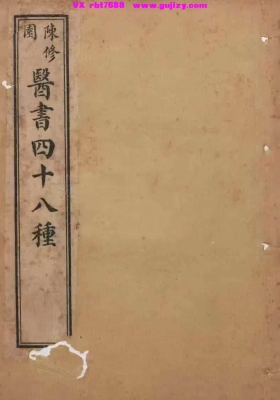 VX rbt7688 www.gujizy.com
陳修園
醫書四十八種